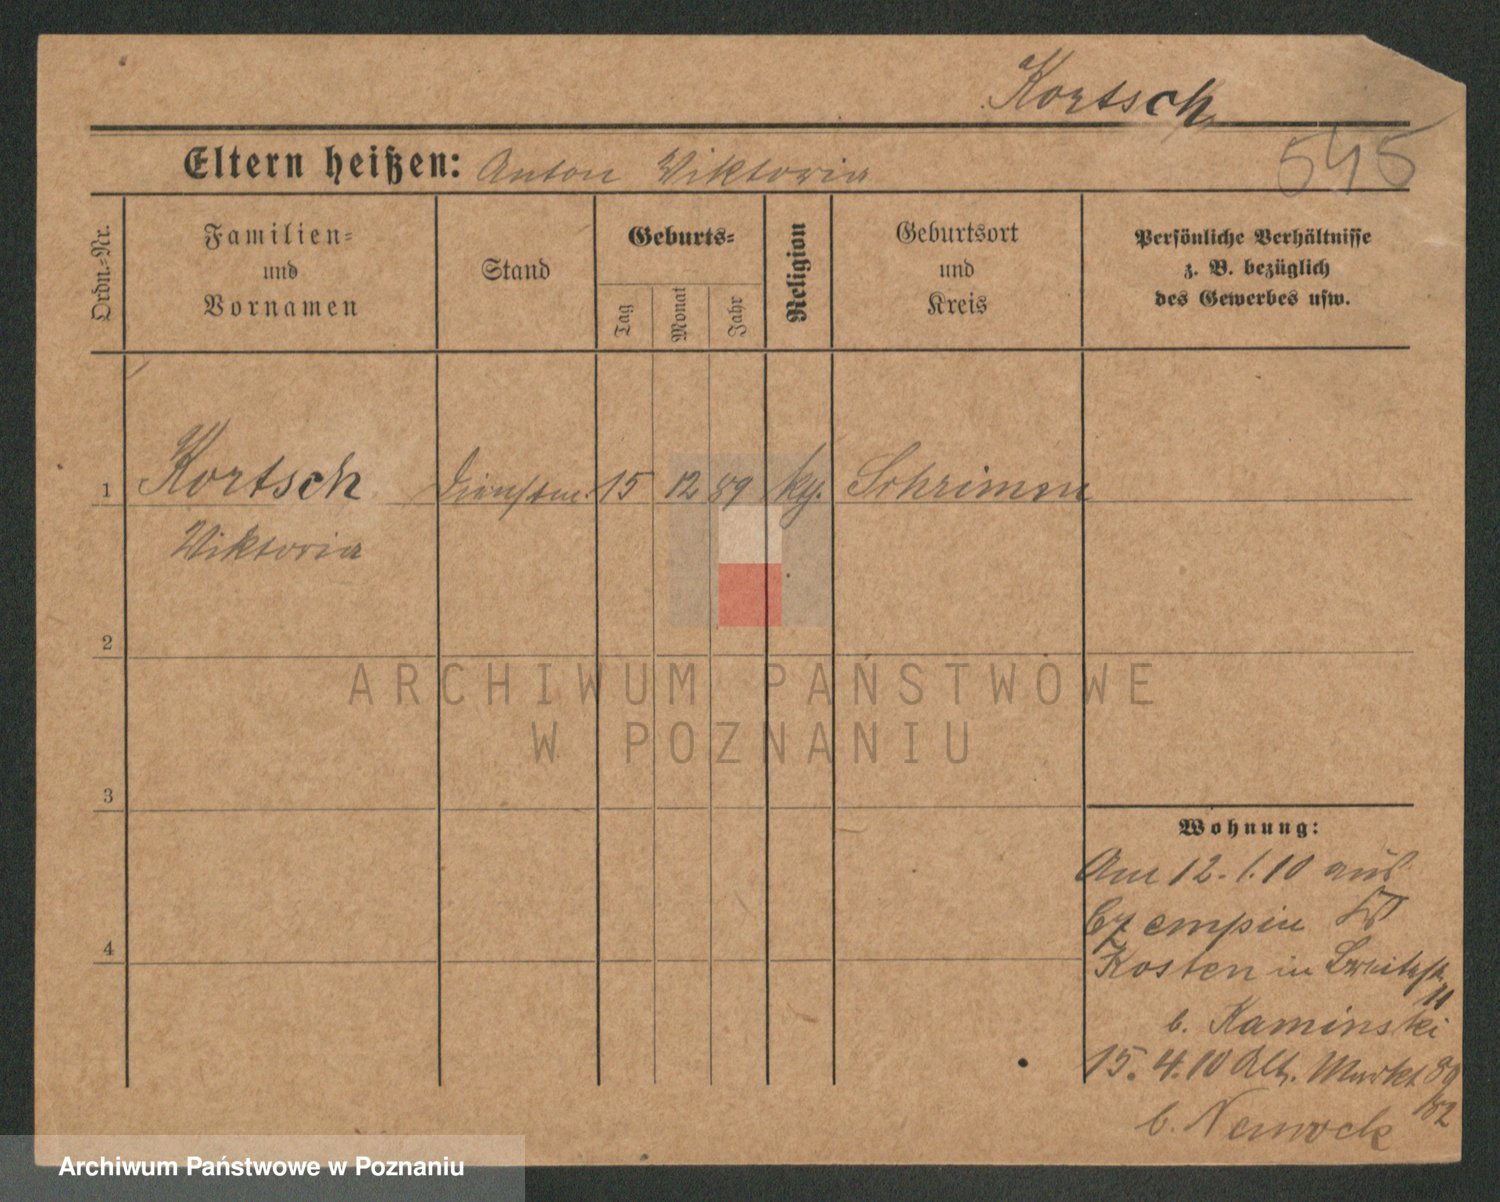 Kortsch
545
Eltern heißen: Anton Viktoria
Ordn.-Nr.
Familien-
und
Vornamen
Stand
Geburts-
Tag
Monat
Jahr
Religion
Geburtsort
und
Kreis
Persönliche Verhältnisse
z. B. bezüglich
des Gewerbes usw.
1 Kortsch Dienstm. 15 12 89 Schrimm
Viktoria
2
3
4
Wohnung:
Am 12.1.10 aus
Czempin
Kosten in Breitestr.
11
b. Kaminski
15.4.10 Alt. Markt 89
/82
b.
ARCHIWUM PAŃSTWOWE
W POZNANIU
Archiwum Państwowe w Poznaniu